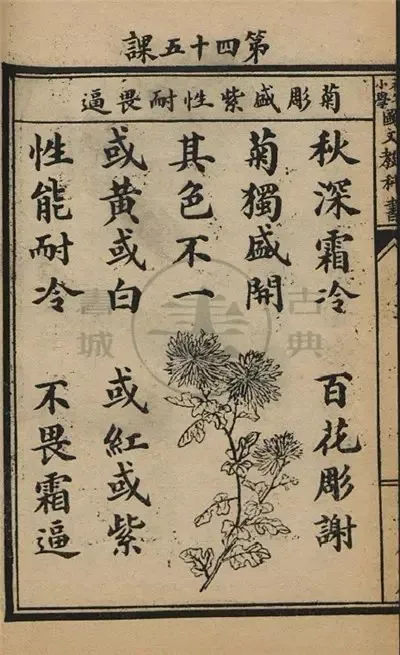 第四十五課
菊彫盛紫性耐畏逼
小學國文教科書
秋深霜冷　百花彫謝
菊獨盛開
其色不一
或黃或白　或紅或紫
性能耐冷　不畏霜逼
古典
書城